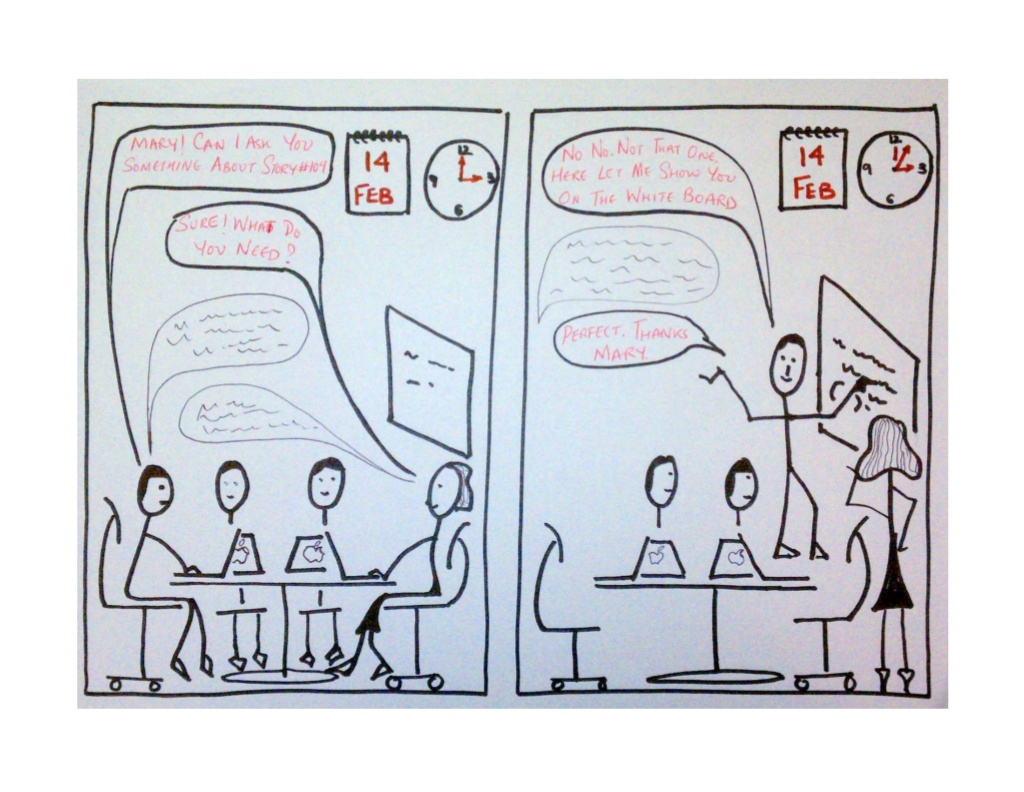 MARY! CAN I ASK YOU
SOMETHING ABOUT STORY#104
14
FEB
12
9
3
6
SURE! WHAT DO
YOU NEED?
NO NO. NOT THAT ONE.
HERE LET ME SHOW YOU
ON THE WHITE BOARD
14
FEB
12
9
3
6
PERFECT. THANKS
MARY.